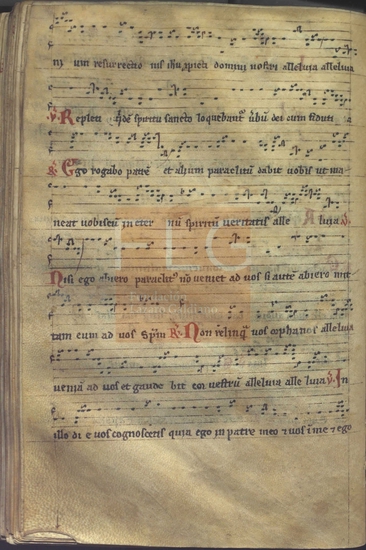 ni um resurrectio nis ihu xpicti domini nostri alleluia alleluia
℣ Repleti qdē spiritu sancto loquebant ūbū dei cum fiduti a
℟ Ego rogabo patrē et alium paraclitū dabit vobis ut ma
neat vobiscū in eter nū spiritū veritatis alle luia ℣
Nisi ego abiero paraclit nō veniet ad vos si autē abiero mit
tam eum ad vos ℟ Non relinq vos orphanos alleluia
veniā ad vos et gaude bit cor vestrū alleluia alle luia ℣ In
illo di e vos cognoscetis quia ego in patre meo ⁊ vos ī me ⁊ ego